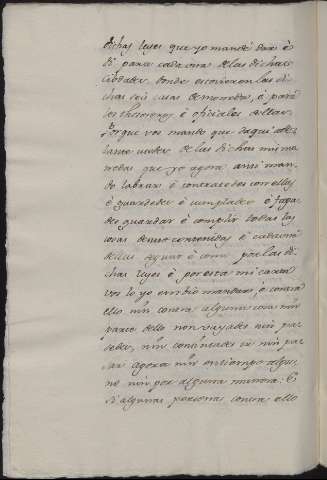 dichas leyes que yo mandé dar é
di para cada una de las dichas
cibdades, donde estovieren las di-
chas seis casas de moneda, é para
los thesoreros é oficiales dellas.
Porque vos mando que daqui ade-
lante usedes de las dichas mis mo-
nedas que yo agora ansi man-
do labrar é contractedes con ellas
é guardedes é cumplades é faga-
des guardar é complir todas las
cosas de uso contenidas é cada una
dellas segund é como por las di-
chas leyes é por esta mi carta
vos lo yo envio mandar, é contra
ello nin contra alguna cosa nin
parte dello non vayades nin pa-
sedes, nin consintades ir nin pa-
sar agora nin en tiempo algu-
no nin por alguna manera: E
si algunas personas contra ello